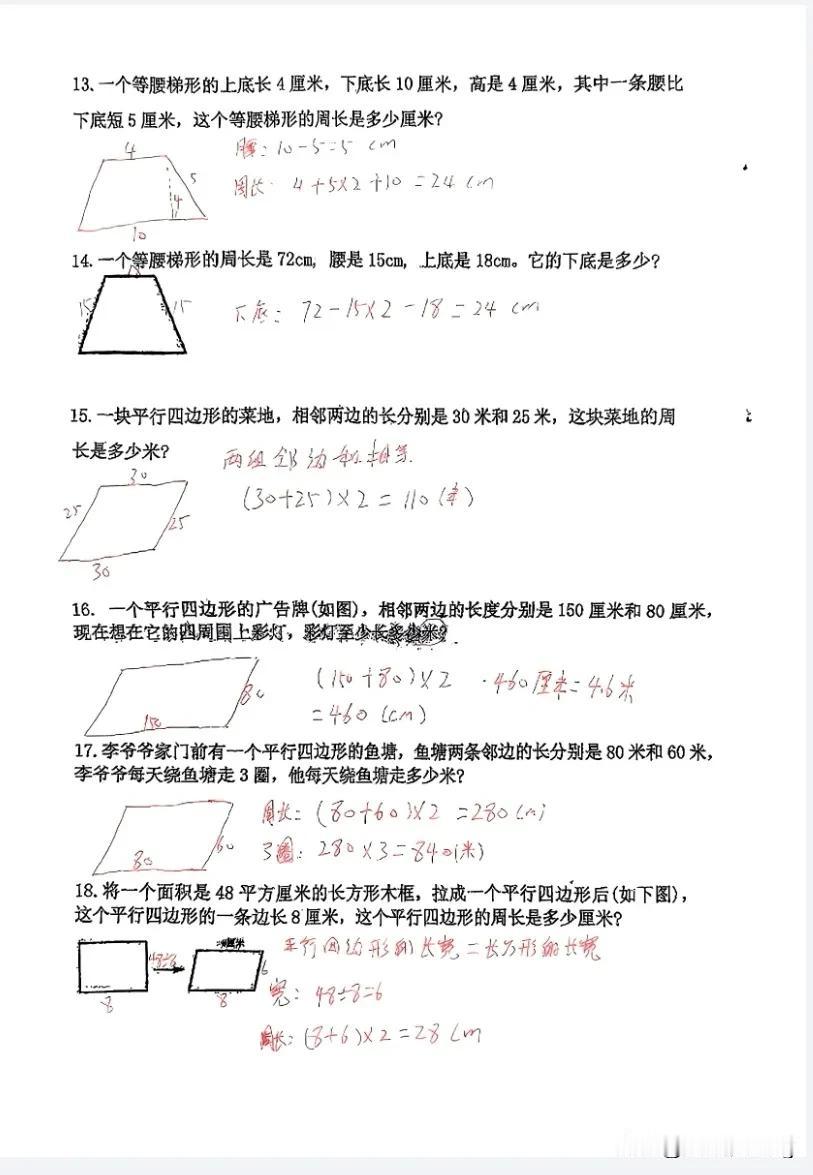 13.一个等腰梯形的上底长4厘米，下底长10厘米，高是4厘米，其中一条腰比
下底短5厘米，这个等腰梯形的周长是多少厘米?
4
腰：10-5=5 cm
5
周长: 4+5×2+10=24cm
4
10
14.一个等腰梯形的周长是72cm, 腰是15cm, 上底是18cm。它的下底是多少?
18
15
15
下底：72-15×2-18=24 cm
15.一块平行四边形的菜地，相邻两边的长分别是30米和25米，这块菜地的周
长是多少米?
两组邻边和相等
30
25
25
(30+25)×2=110(米)
30
16. 一个平行四边形的广告牌(如图)，相邻两边的长度分别是150厘米和80厘米，
现在想在它的四周围上彩灯，彩灯至少长多少米?
(150+80)×2
460厘米=4.6米
80
150
=460(cm)
17.李爷爷家门前有一个平行四边形的鱼塘，鱼塘两条邻边的长分别是80米和60米，
李爷爷每天绕鱼塘走3圈，他每天绕鱼塘走多少米?
周长：(80+60)×2=280(m)
60
80
3圈：280×3=840(米)
18.将一个面积是48平方厘米的长方形木框，拉成一个平行四边形后(如下图)，
这个平行四边形的一条边长8厘米，这个平行四边形的周长是多少厘米?
平行四边形的长宽=长方形的长宽
6
8
8
宽：48÷8=6
周长：(8+6)×2=28cm